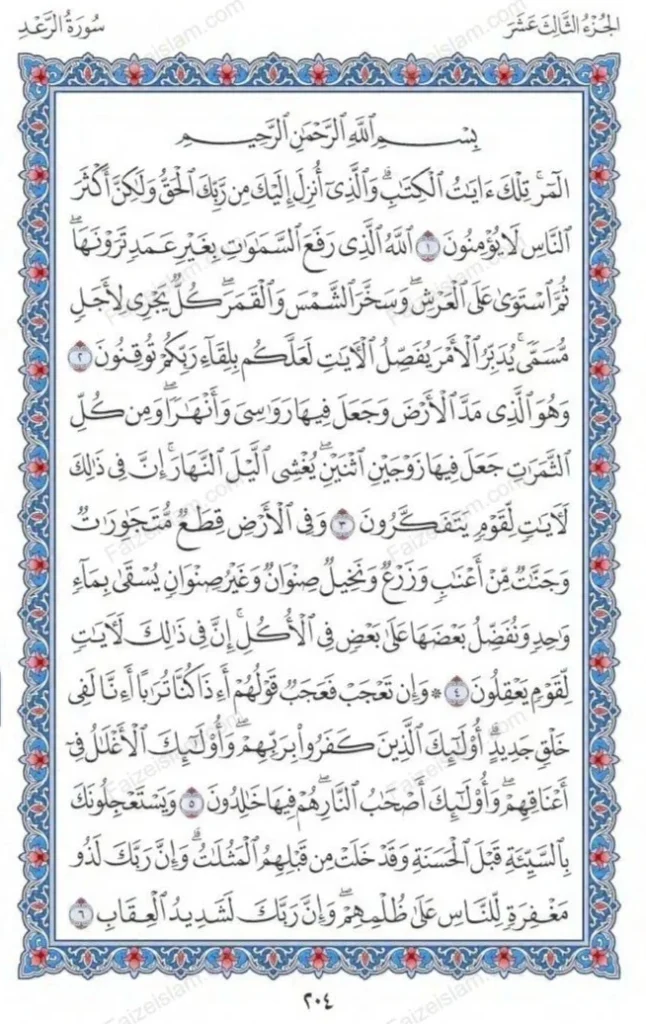 الجُزْءُ الثَّالِثَ عَشَرَ
سُورَةُ الرَّعْدِ
بِسْمِ ٱللَّهِ ٱلرَّحْمَٰنِ ٱلرَّحِيمِ
الٓمٓرۚ تِلْكَ ءَايَٰتُ ٱلْكِتَٰبِۗ وَٱلَّذِىٓ أُنزِلَ إِلَيْكَ مِن رَّبِّكَ ٱلْحَقُّ وَلَٰكِنَّ أَكْثَرَ
ٱلنَّاسِ لَا يُؤْمِنُونَ ١ ٱللَّهُ ٱلَّذِى رَفَعَ ٱلسَّمَٰوَٰتِ بِغَيْرِ عَمَدٍ تَرَوْنَهَاۖ
ثُمَّ ٱسْتَوَىٰ عَلَى ٱلْعَرْشِۖ وَسَخَّرَ ٱلشَّمْسَ وَٱلْقَمَرَۖ كُلٌّ يَجْرِى لِأَجَلٍ
مُّسَمًّىۚ يُدَبِّرُ ٱلْأَمْرَ يُفَصِّلُ ٱلْءَايَٰتِ لَعَلَّكُم بِلِقَآءِ رَبِّكُمْ تُوقِنُونَ ٢
وَهُوَ ٱلَّذِى مَدَّ ٱلْأَرْضَ وَجَعَلَ فِيهَا رَوَٰسِىَ وَأَنْهَٰرًاۖ وَمِن كُلِّ
ٱلثَّمَرَٰتِ جَعَلَ فِيهَا زَوْجَيْنِ ٱثْنَيْنِۖ يُغْشِى ٱلَّيْلَ ٱلنَّهَارَۚ إِنَّ فِى ذَٰلِكَ
لَءَايَٰتٍ لِّقَوْمٍ يَتَفَكَّرُونَ ٣ وَفِى ٱلْأَرْضِ قِطَعٌ مُّتَجَٰوِرَٰتٌ
وَجَنَّٰتٌ مِّنْ أَعْنَٰبٍ وَزَرْعٌ وَنَخِيلٌ صِنْوَانٌ وَغَيْرُ صِنْوَانٍ يُسْقَىٰ بِمَآءٍ
وَٰحِدٍ وَنُفَضِّلُ بَعْضَهَا عَلَىٰ بَعْضٍ فِى ٱلْأُكُلِۚ إِنَّ فِى ذَٰلِكَ لَءَايَٰتٍ
لِّقَوْمٍ يَعْقِلُونَ ٤ ۞ وَإِن تَعْجَبْ فَعَجَبٌ قَوْلُهُمْ أَءِذَا كُنَّا تُرَٰبًا أَءِنَّا لَفِى
خَلْقٍ جَدِيدٍۗ أُو۟لَٰٓئِكَ ٱلَّذِينَ كَفَرُوا۟ بِرَبِّهِمْۖ وَأُو۟لَٰٓئِكَ ٱلْأَغْلَٰلُ فِىٓ
أَعْنَاقِهِمْۖ وَأُو۟لَٰٓئِكَ أَصْحَٰبُ ٱلنَّارِۖ هُمْ فِيهَا خَٰلِدُونَ ٥ وَيَسْتَعْجِلُونَكَ
بِٱلسَّيِّئَةِ قَبْلَ ٱلْحَسَنَةِ وَقَدْ خَلَتْ مِن قَبْلِهِمُ ٱلْمَثُلَٰتُۗ وَإِنَّ رَبَّكَ لَذُو
مَغْفِرَةٍ لِّلنَّاسِ عَلَىٰ ظُلْمِهِمْۖ وَإِنَّ رَبَّكَ لَشَدِيدُ ٱلْعِقَابِ ٦
٢٠٤
Faizeislam.com